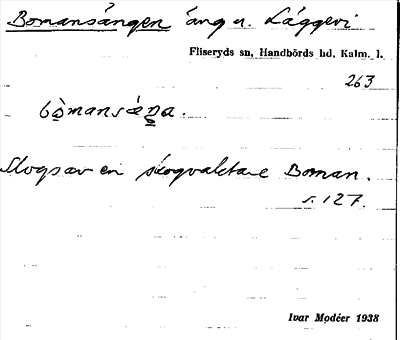 Bomansängen äng u. Läggevi
Fliseryds sn, Handbörds hd, Kalm. l.
263
bòmansæ̀ŋa.
Slogs av en skogvaktare Boman.
s. 127.
Ivar Modéer 1938